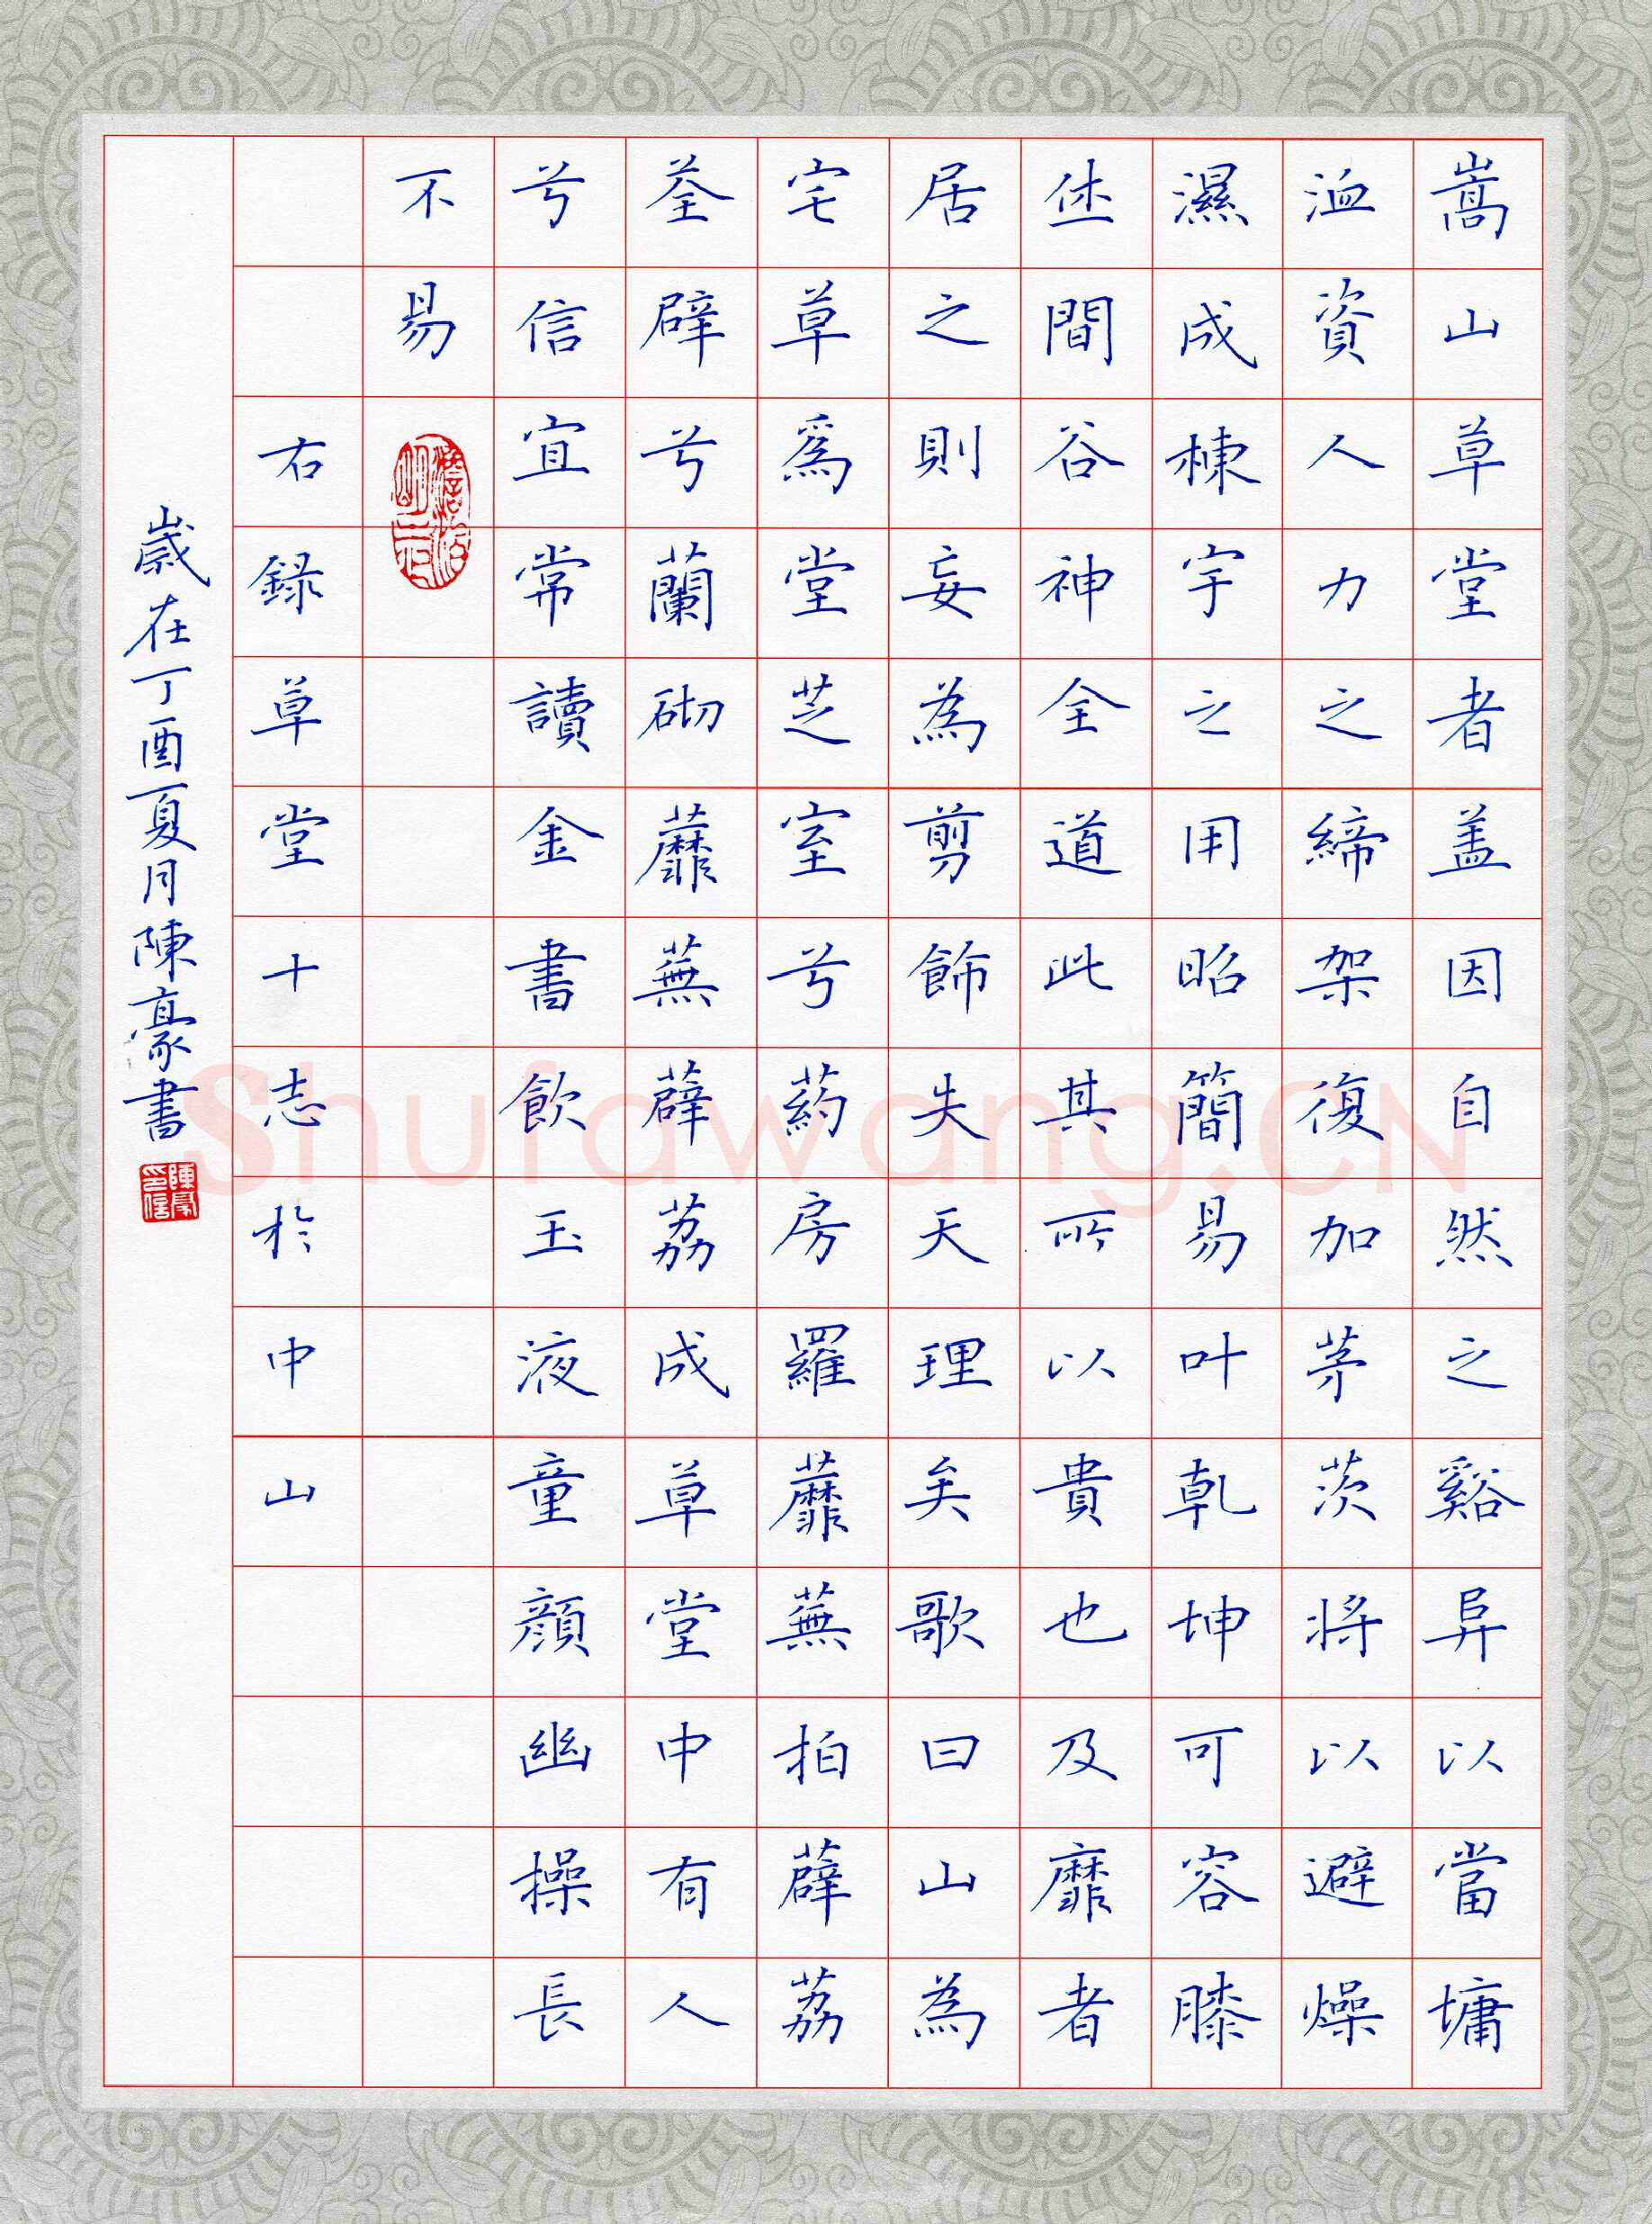 嵩山草堂者盖因自然之谿阜以當墉
洫資人力之締架復加茅茨將以避燥
濕成棟宇之用昭簡易叶乾坤可容膝
休間谷神全道此其所以貴也及靡者
居之則妄為剪飾失天理矣歌曰山為
宅草爲堂芝室兮葯房羅蘼蕪拍薜荔
荃壁兮蘭砌蘼蕪薜荔成草堂中有人
兮信宜常讀金書飲玉液童顔幽操長
不易
右錄草堂十志於中山
歲在丁酉夏月陳豪書
陳豪印信
Shufawang.CN